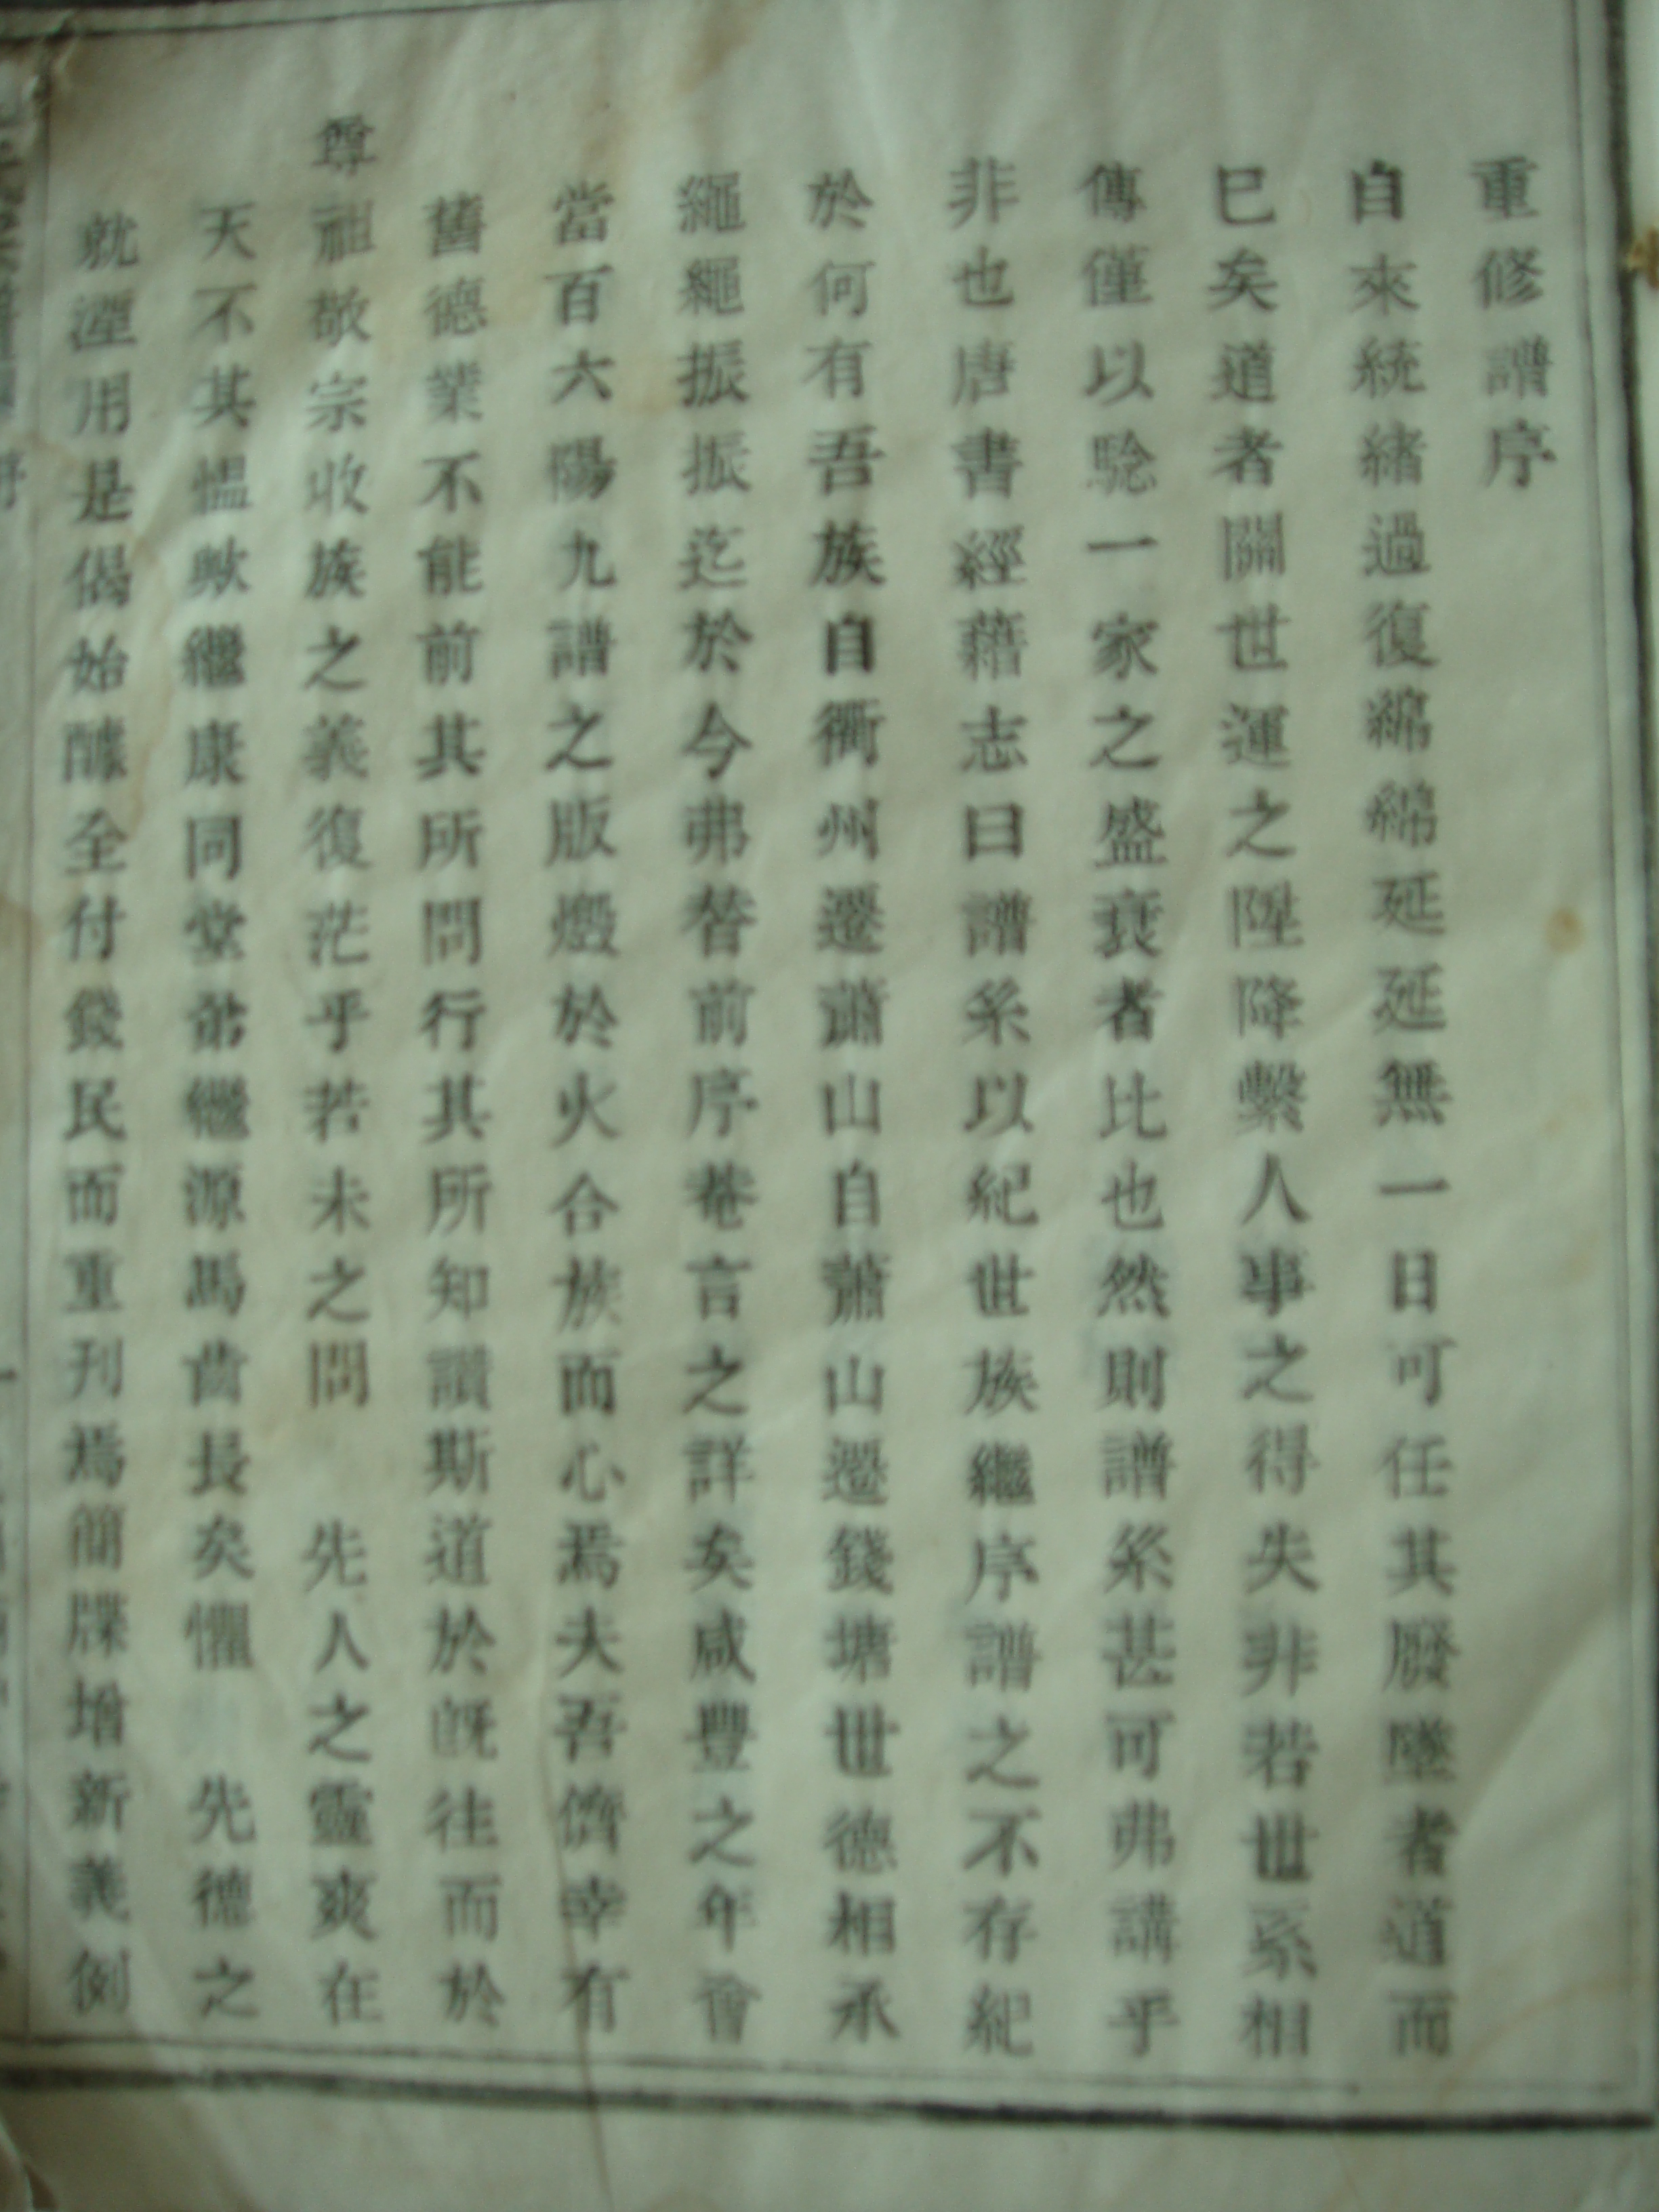 重修譜序
自來統緒過復綿綿延延無一日可任其廢墜者道而
已矣道者關世運之陞降繫人事之得失非若世系相
傳僅以騐一家之盛衰者比也然則譜系甚可弗講乎
非也唐書經藉志曰譜系以紀世族繼序譜之不存紀
於何有吾族自衢州遷蕭山自蕭山遷錢塘世德相承
繩繩振振迄於今弗替前序菴言之詳矣咸豐之年會
當百六陽九譜之版燬於火合族而心焉夫吾儕幸有
舊德業不能前其所問行其所知讃斯道於旣徃而於
尊祖敬宗收族之義復茫乎若未之問 先人之靈爽在
天不其慍歟繼康同堂弟繼源馬齒長矣懼 先德之
就湮用是偈始醵全付錢民而重刋焉簡牒增新義例